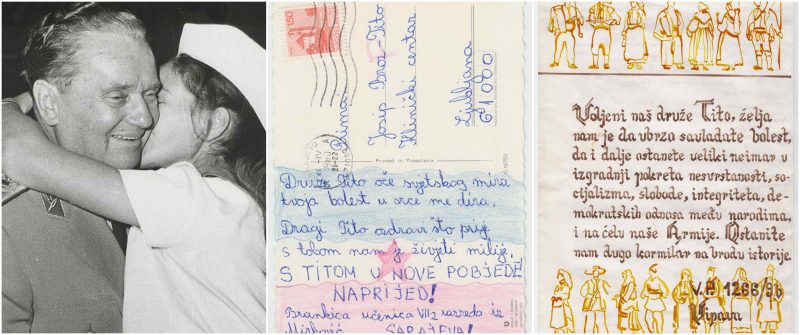 1.50
Prima:
Josip Broz-Tito
Klinički centar
Ljubljana
61000
Printed in Yugoslavia
Druže Tito oče svjetskog mira
tvoja bolest u srce me dira,
Dragi Tito ozdravi što prije
s tobom nam je živjeti milije.
S TITOM U NOVE POBJEDE
NAPRIJED!
Brankica učenica VII2 razreda iz
SARAJEVA!
Voljeni naš druže Tito, želja
nam je da ubrzo savladate bolest,
da i dalje ostanete veliki neimar u
izgradnji pokreta nesvrstanosti, so-
cijalizma, slobode, integriteta, de-
mokratskih odnosa među narodima,
i na čelu naše Armije. Ostanite
nam dugo kormilar na brodu istorije.
V.P. 1266/9b
Vipava